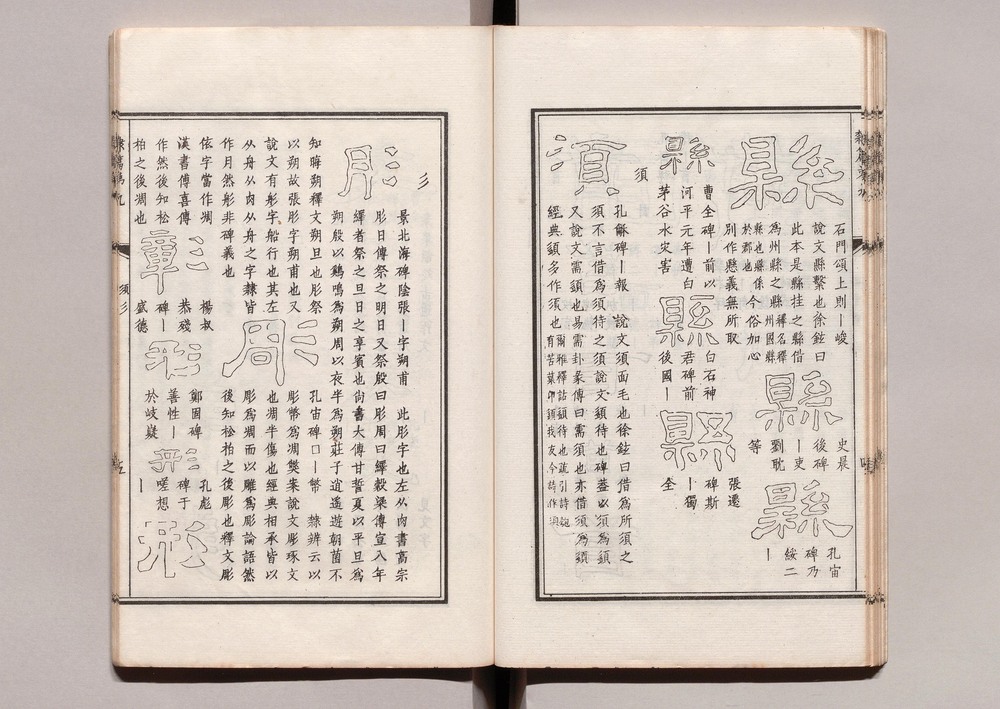 縣
石門頌上則丨峻
說文縣繫也徐鉉曰
此本是縣挂之縣借
為州縣之縣釋名釋州國縣
縣也縣係於郡也今俗加心
別作懸義無所取
縣
史晨
後碑
丨吏
劉耽
等
縣
孔宙
碑乃
綏二
丨
縣
曹全碑丨前以
河平元年遭白
茅谷水灾害
縣
白石神
君碑前
後國丨
縣
張遷
碑斯
丨獨
全
須
須
孔龢碑丨報 說文須面毛也徐鉉曰借為所須之
須不言借為須待之須說文䇓待也碑蓋以須為䇓
又說文需䇓也易需卦彖傳曰需須也亦借須為䇓
經典䇓多作須也爾雅釋詁䇓待也疏引詩匏
有苦葉卬䇓我友今詩作須
彡
肜
景北海碑陰張丨字朔甫 此肜字也左从肉書高宗
肜日傳祭之明日又祭殷曰肜周曰繹穀梁傳宣八年
繹者祭之旦日之享賓也尚書大傳甘誓夏以平旦為
朔殷以鷄鳴為朔周以夜半為朔莊子逍遥遊朝菌不
知晦朔釋文朔旦也肜祭
以朔故張肜字朔甫也又
說文有彤字船行也其左
从舟从肉从舟之字隸皆
作月然彤非碑義也
彫
孔宙碑囗丨幣 隸辨云以
彫幣為凋獘案說文彫琢文
也凋半傷也經典相承皆以
彫為凋而以雕為彫論語然
後知松柏之後彫也釋文彫
依字當作凋
漢書傅喜傳
作然後知松
柏之後凋也
彰
楊叔
恭殘
碑丨
盛德
形
鄭固碑
善性丨
於岐嶷
形
孔彪
碑于
嘿想
丨
形
須彡